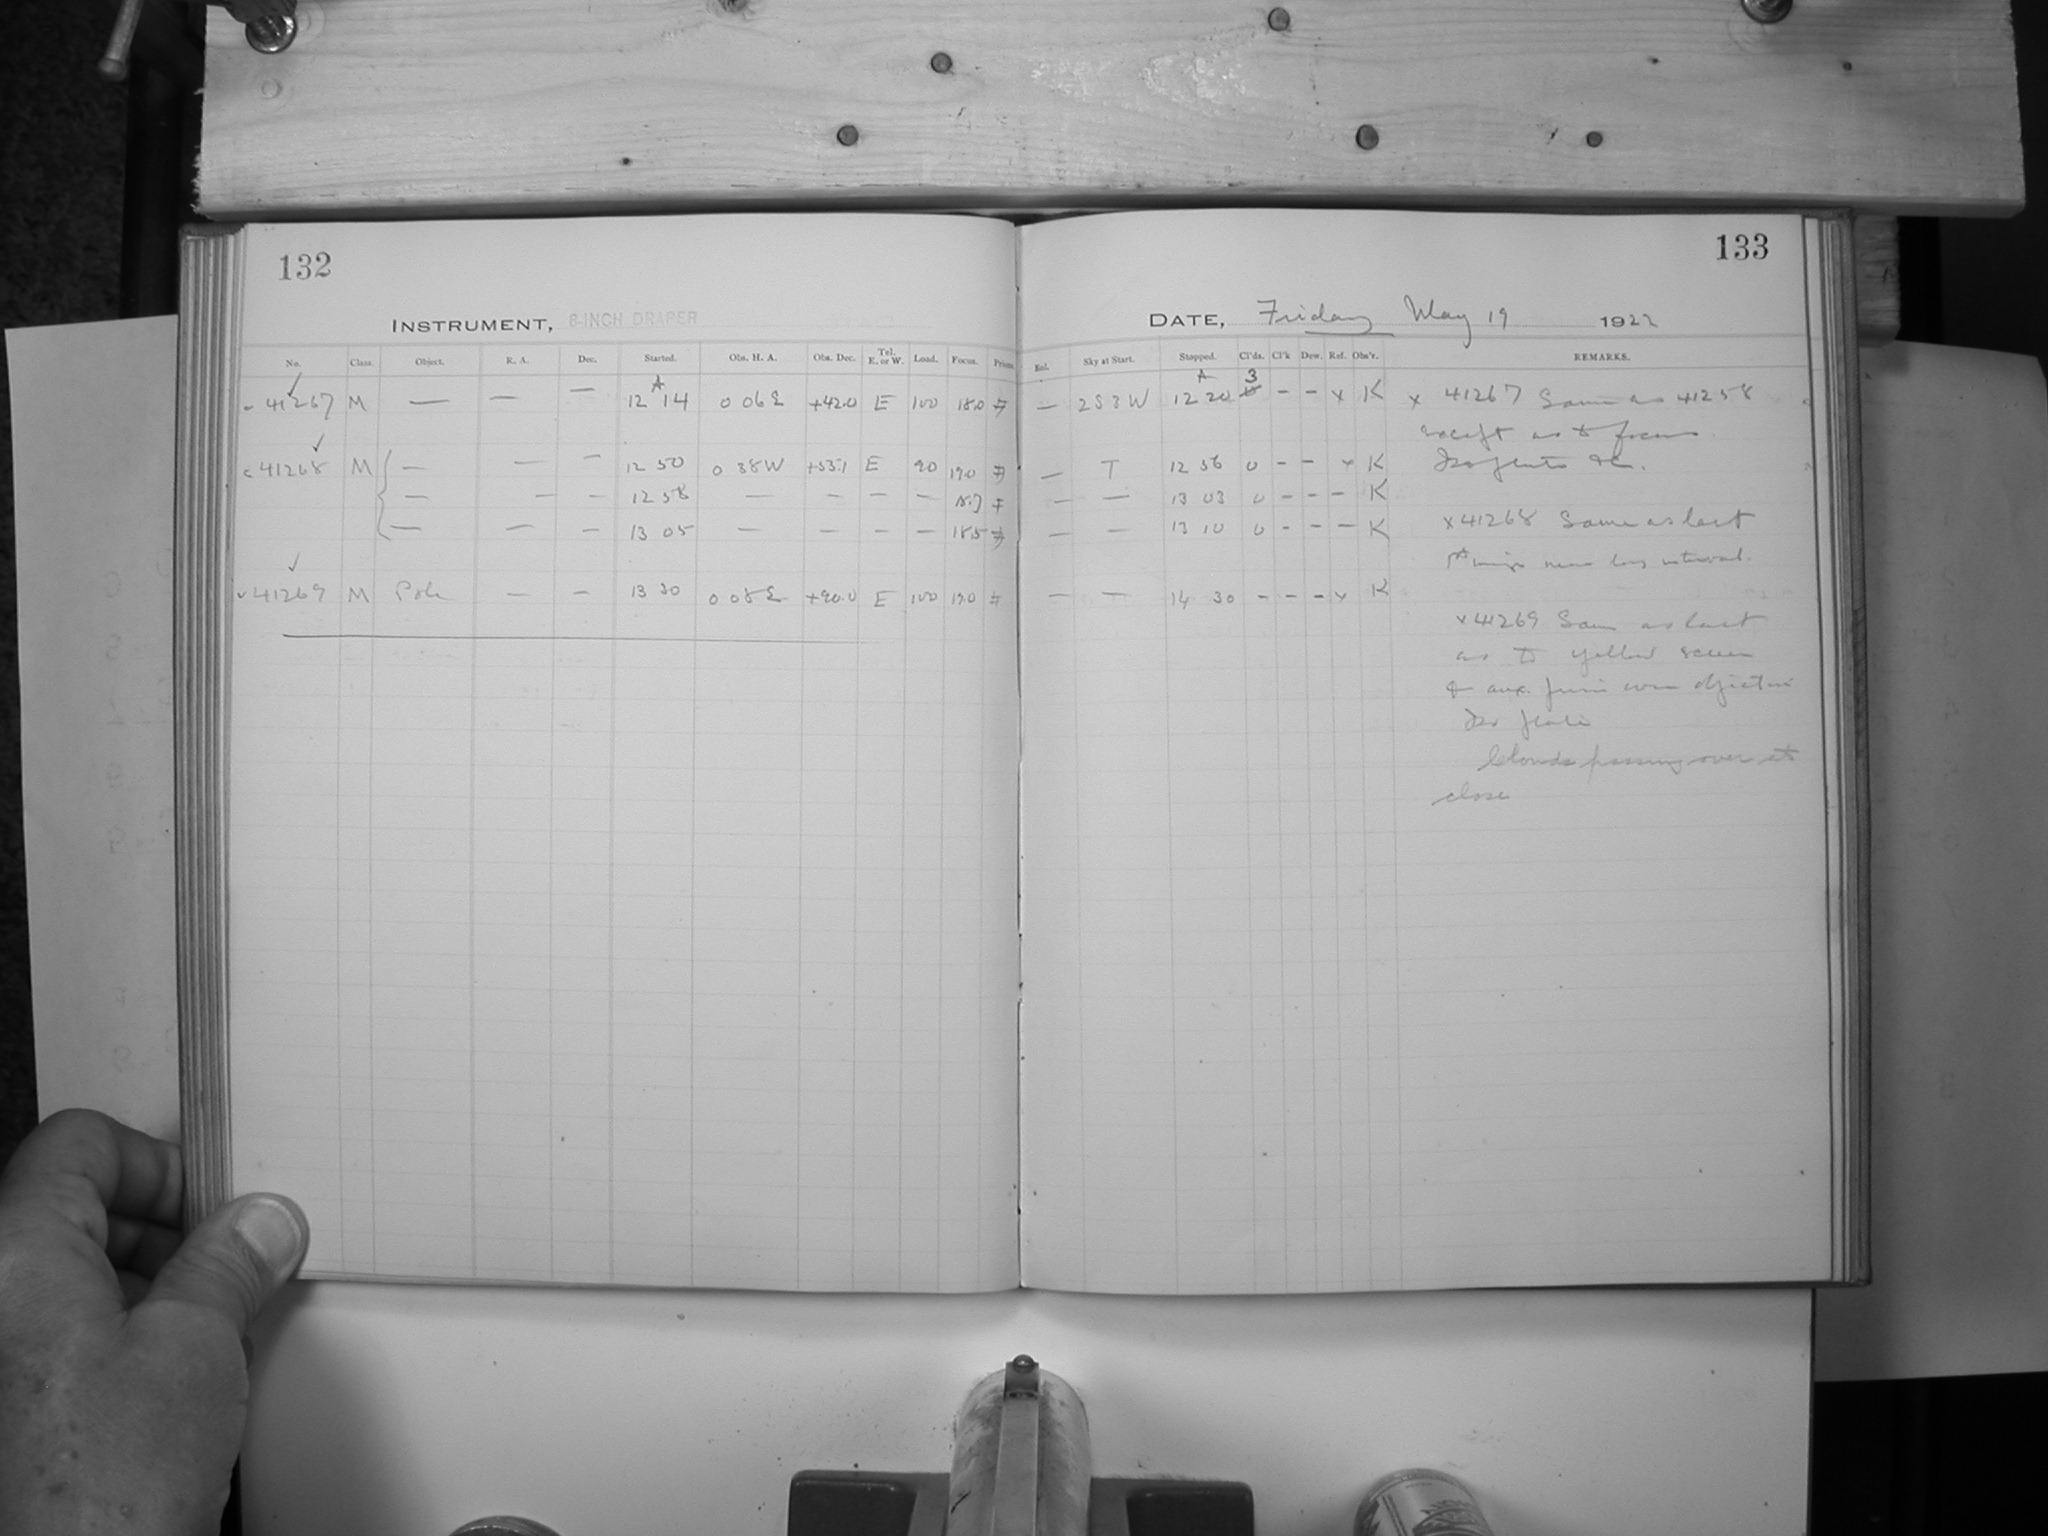 132
INSTRUMENT, 8-INCH DRAPER
No. Class. Object. R. A. Dec. Started. Obs. H. A. Obs. Dec. Tel. E. or W. Load. Focus.
41267 M — — — 12 14 0 06 E +42.0 E 100 18.0
41268 M — — — 12 50 0 38 W +53.1 E 90 19.0
— — — 12 58 — — — — 18.7
— — — 13 05 — — — — 18.5
41269 M Pole — — 13 30 0 08 E +90.0 E 100 19.0
133
DATE, Friday May 19 1922
Sky at Start. Stopped. Cl'ds. Cl'k Dew. Ref. Obs'r. REMARKS.
— 2S3W 12 20 3 – – x K
— T 12 56 0 – – x K
— — 13 03 0 – – – K
— — 13 10 0 – – – K
— — 14 30 – – – x K
x 41267 Same as 41258
except as to focus
x 41268 Same as last
x 41269 Same as last
as to yellow screen
& aux.
Clouds passing over at
close